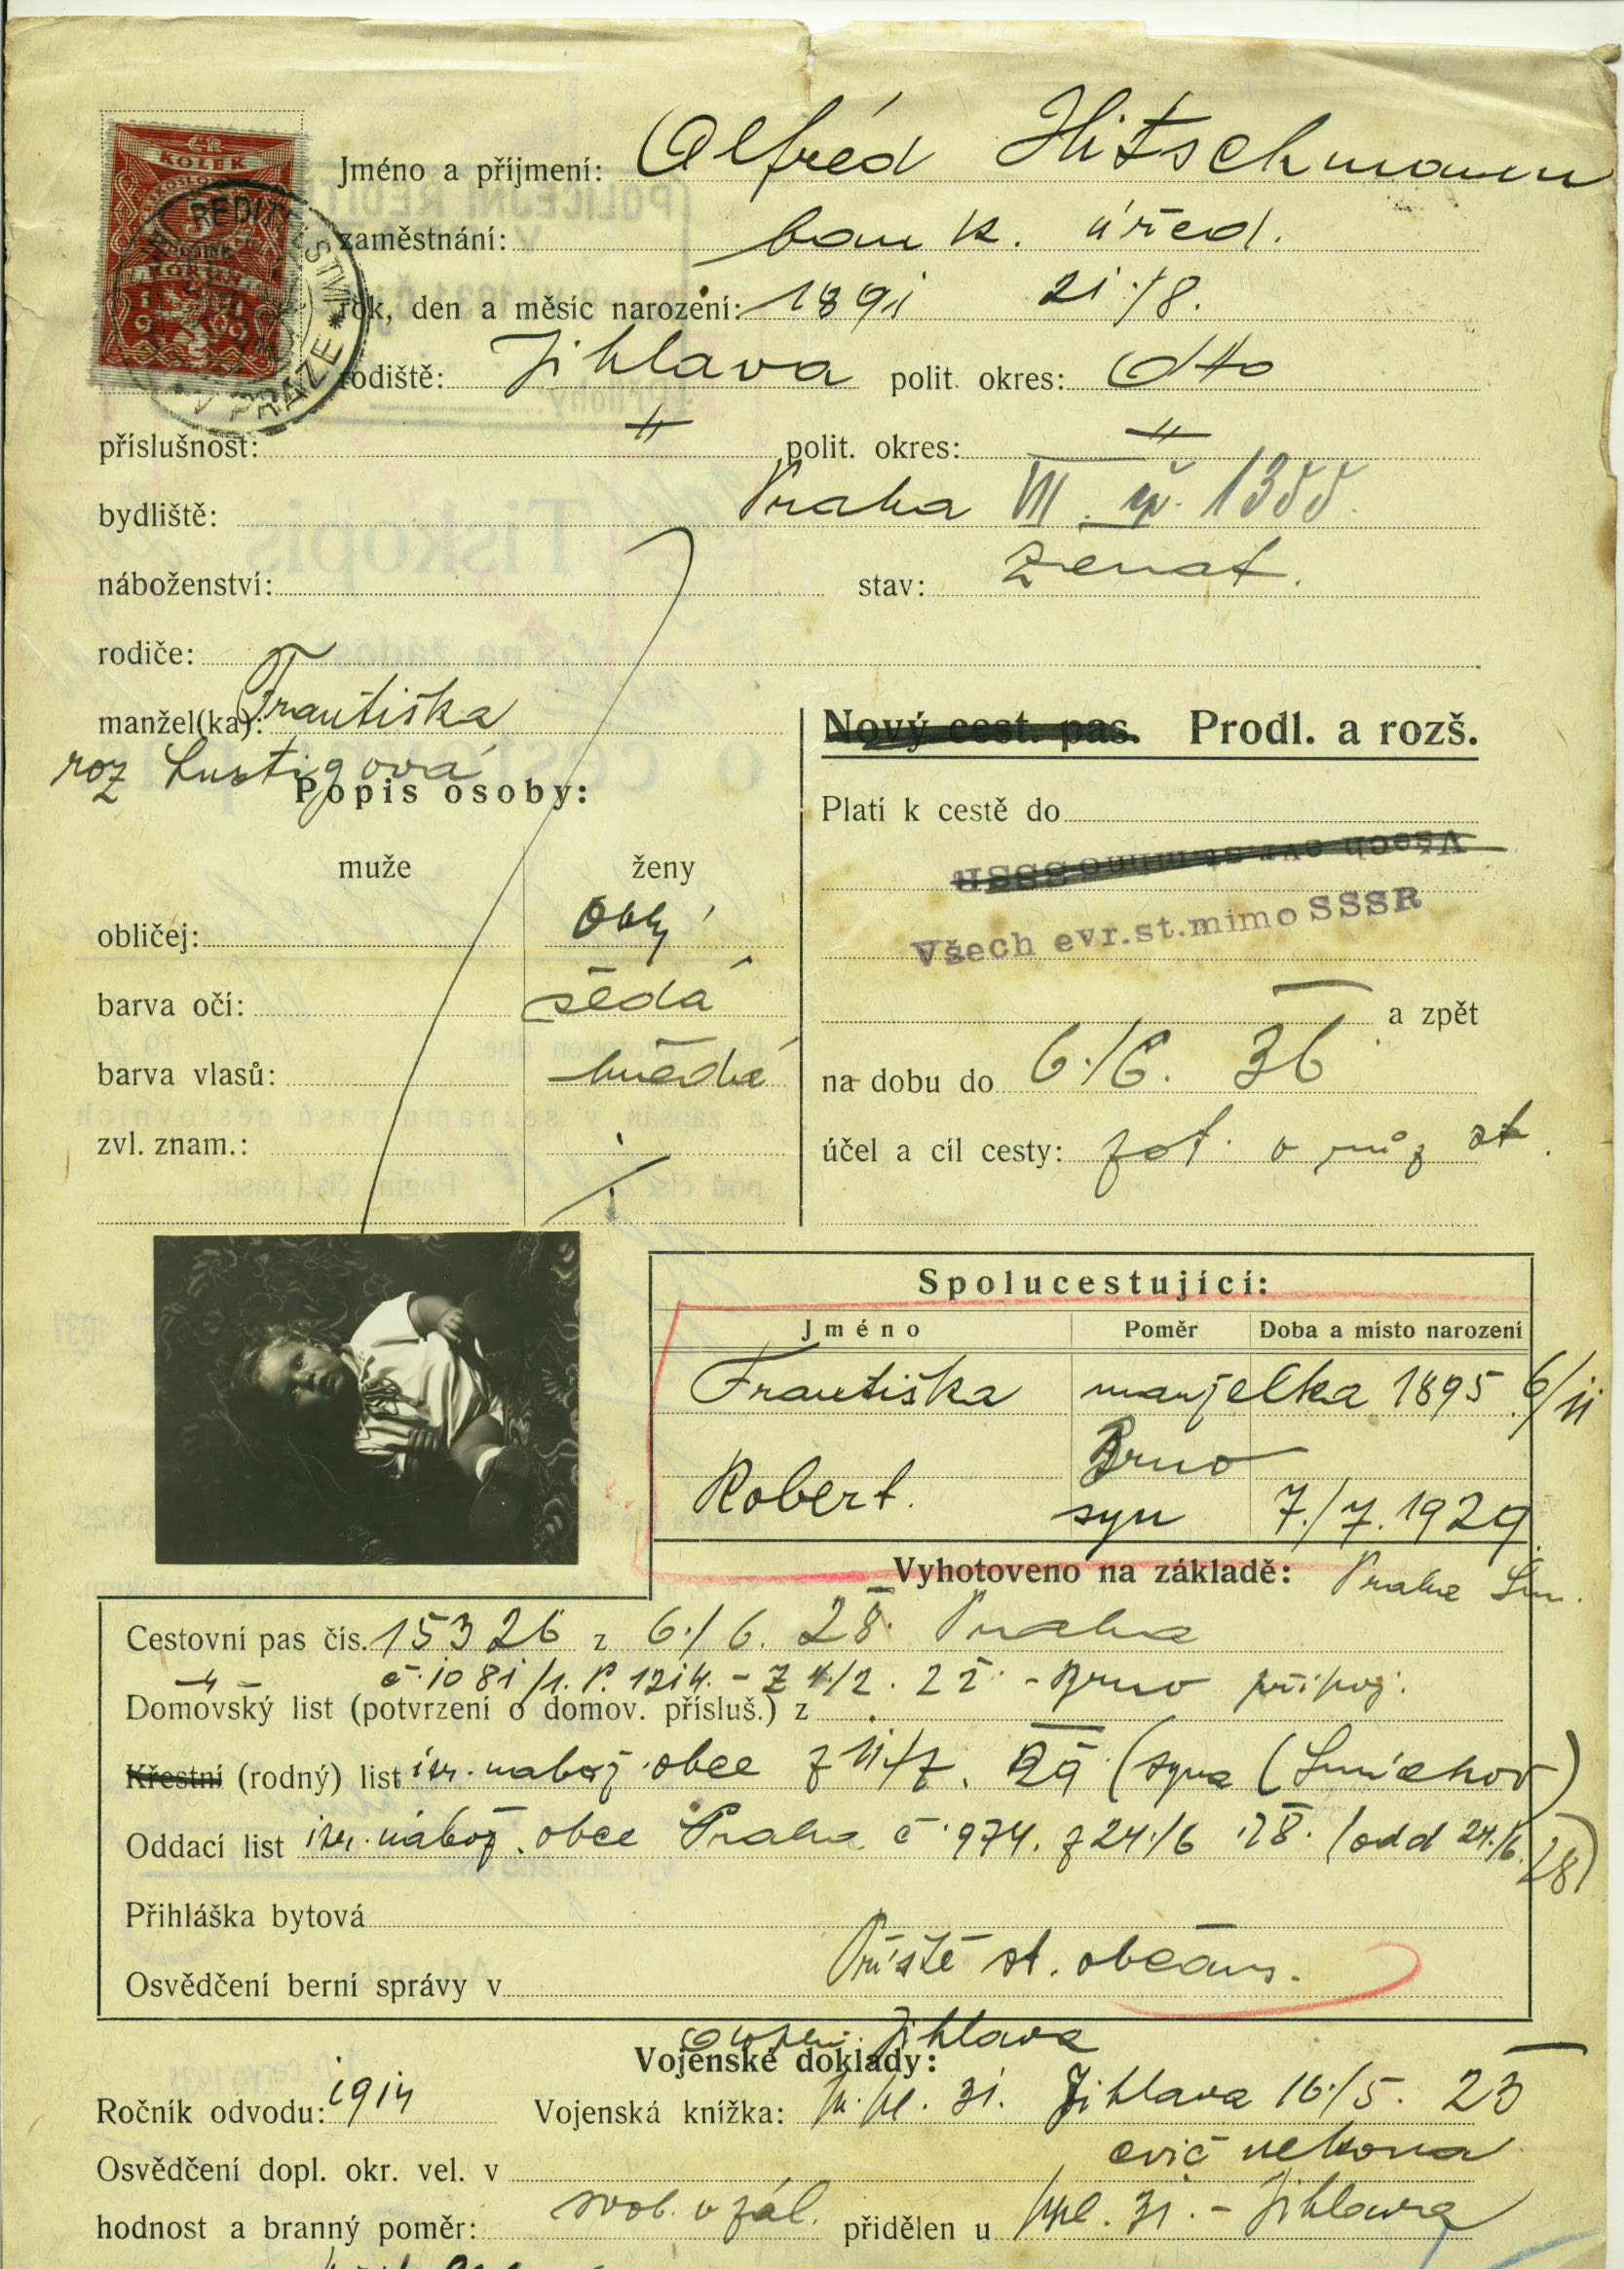 KOLEK
ŘEDITELSTVÍ
V PRAZE *
Jméno a příjmení: Alfréd Hitschmann
zaměstnání: bank. úřed.
rok, den a měsíc narození: 1891 21./8.
rodiště: Jihlava polit. okres: dtto
příslušnost: -"- polit. okres: -"-
bydliště: Praha VII. čp. 1355.
náboženství: stav: ženat.
rodiče:
manžel(ka): Františka
roz Lustigová
Popis osoby:
muže ženy
obličej: oblý
barva očí: šedá
barva vlasů: hnědá
zvl. znam.:
Nový cest. pas. Prodl. a rozš.
Platí k cestě do
Všech evr.st.mimo SSSR
Všech evr.st.mimo SSSR
a zpět
na dobu do 6./6. 36
účel a cíl cesty:
Spolucestující:
Jméno Poměr Doba a místo narození
Františka manželka 1895 6/11
Brno
Robert. syn 7./7. 1929.
Praha Sm.
Vyhotoveno na základě:
Cestovní pas čís. 15326 z 6./6. 28. Praha
-"- č. 1081/1. P. 1214. - z 4/2. 22. - Brno připoj.
Domovský list (potvrzení o domov. přísluš.) z
Křestní (rodný) list isr. nábož. obce z 11./7. 29 (syna (Smíchov)
Oddací list isr. nábož. obce Praha č. 974. z 24./6 28. (odd 24./6. 28)
Přihláška bytová
Osvědčení berní správy v
Příště st. občans.
Jihlava
Vojenské doklady:
Ročník odvodu: 1914 Vojenská knížka: p. pl. 31. Jihlava 16./5. 23
cvič nekona
Osvědčení dopl. okr. vel. v
hodnost a branný poměr: svob. v zál. přidělen u p.pl. 31. - Jihlava